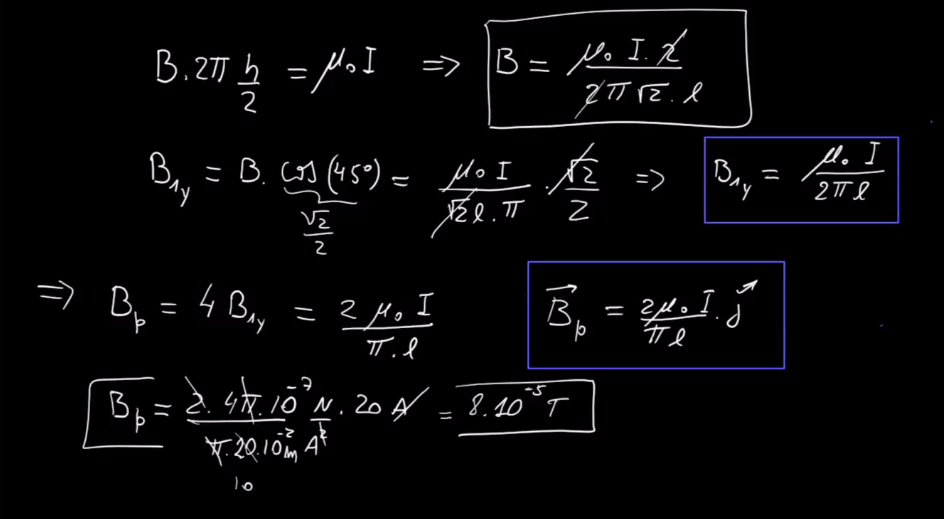 B.2π h/2 = μ₀I ⇒ B = μ₀ I.2 / 2π√2.l
B₁y = B. cos(45°) = μ₀ I / √2 l.π . √2/2 ⇒ B₁y = μ₀ I / 2π l
√2/2
⇒ Bp = 4 B₁y = 2 μ₀ I / π.l B⃗p = 2μ₀ I / π l . j⃗
Bp = 2. 4π.10⁻⁷ N.20 A / π.20.10⁻² m A² = 8.10⁻⁵ T
10